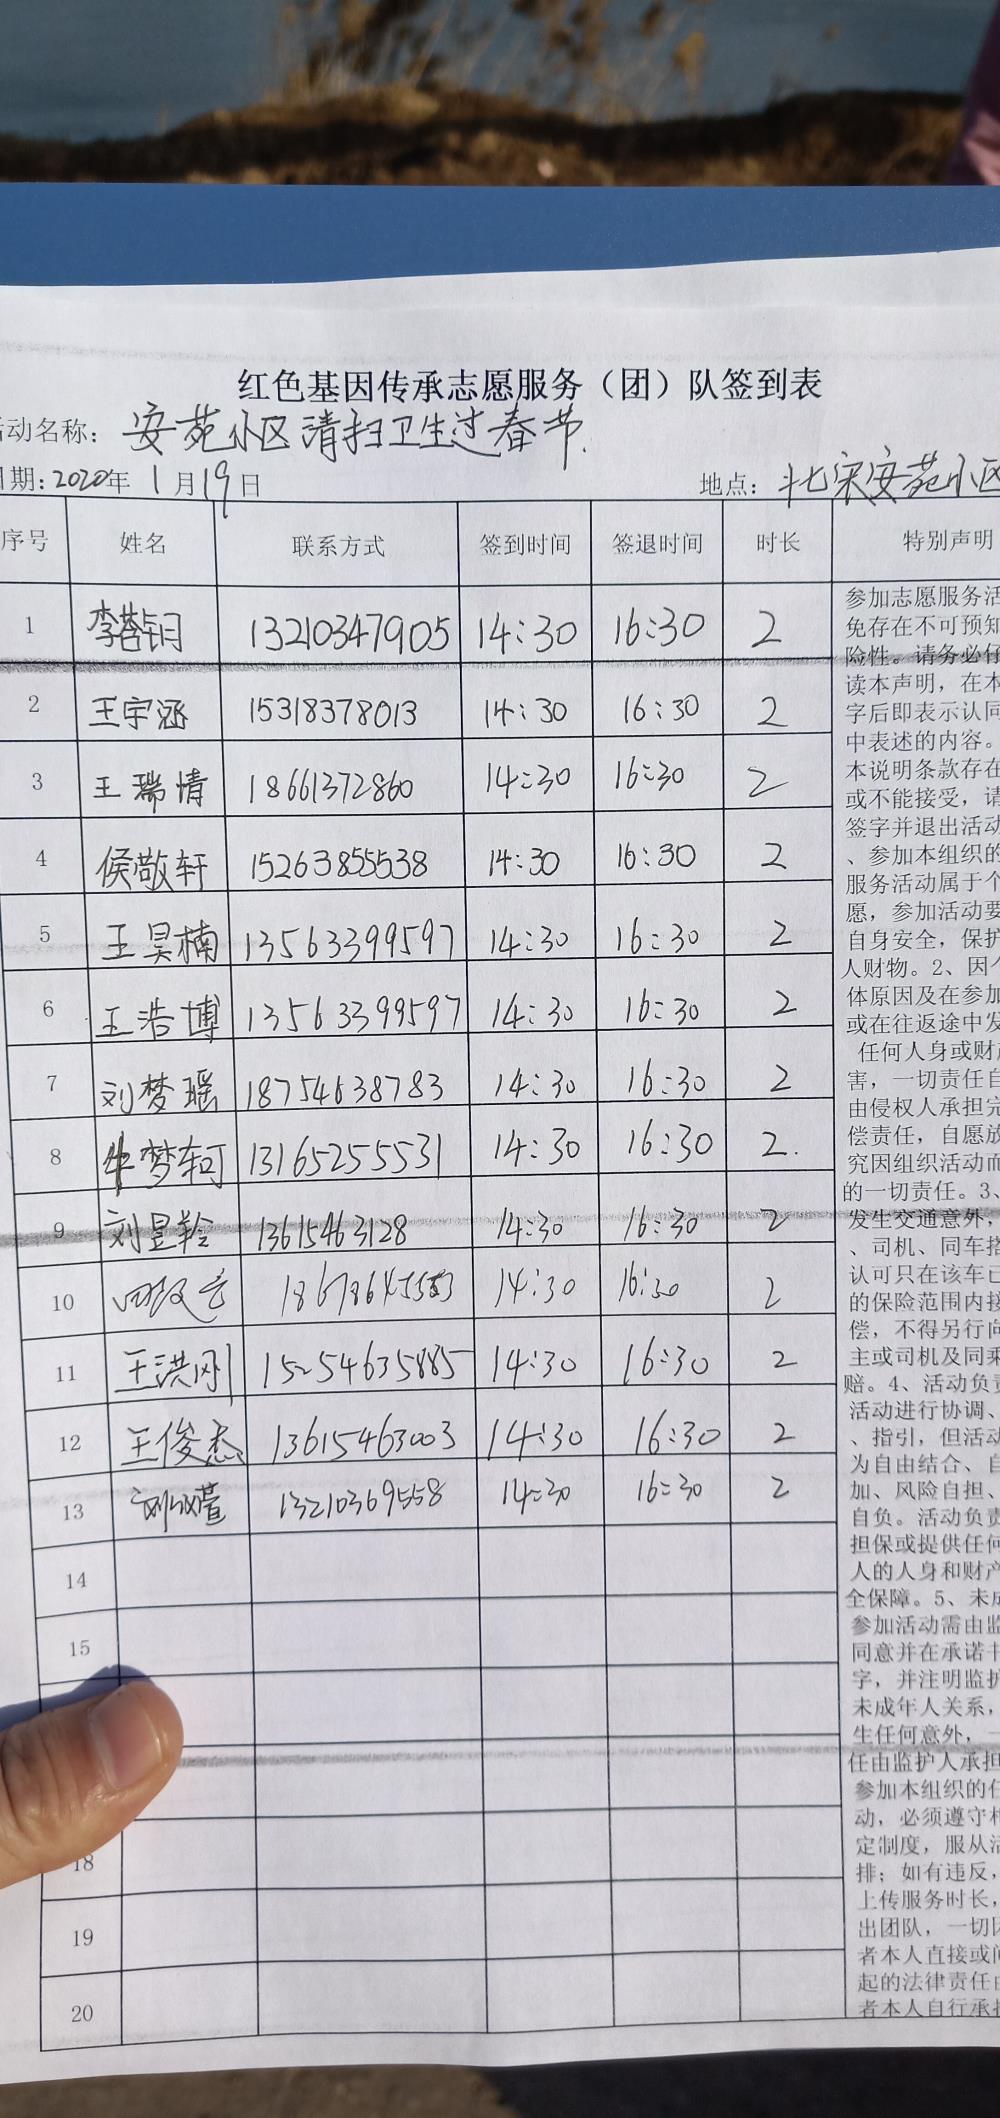 红色基因传承志愿服务（团）队签到表
活动名称：安苑小区清扫卫生过春节.
日期：2020年1月19日 地点：北宋安苑小区
序号 姓名 联系方式 签到时间 签退时间 时长 特别声明
1 13210347905 14:30 16:30 2
2 王宇涵 15318378013 14:30 16:30 2
3 王瑞情 18661372860 14:30 16:30 2
4 侯敬轩 15263855538 14:30 16:30 2
5 王昊楠 13563399597 14:30 16:30 2
6 王浩博 13563399597 14:30 16:30 2
7 刘梦瑶 18754638783 14:30 16:30 2
8 牛梦轲 13165255531 14:30 16:30 2.
9 刘昱羚 13615463128 14:30 16:30 2
10 14:30 16:30 2
11 王洪刚 15254635885 14:30 16:30 2
12 王俊杰 13615463003 14:30 16:30 2
13 13210369558 14:30 16:30 2
14
15
18
19
20
参加志愿服务活
免存在不可预知
险性。请务必仔
读本声明，在本
字后即表示认同
中表述的内容。
本说明条款存在
或不能接受，请
签字并退出活动
、参加本组织的
服务活动属于个
愿，参加活动要
自身安全，保护
人财物。2、因个
体原因及在参加
或在往返途中发
任何人身或财产
害，一切责任自
由侵权人承担完
偿责任，自愿放
究因组织活动而
的一切责任。3、
发生交通意外，
、司机、同车搭
认可只在该车已
的保险范围内接
偿，不得另行向
主或司机及同乘
赔。4、活动负责
活动进行协调、
、指引，但活动
为自由结合、自
加、风险自担、
自负。活动负责
担保或提供任何
人的人身和财产
全保障。5、未成
参加活动需由监
同意并在承诺书
字，并注明监护
未成年人关系，
生任何意外，一
任由监护人承担
参加本组织的任
动，必须遵守相
定制度，服从活
排；如有违反，
上传服务时长，
出团队，一切因
者本人直接或间
起的法律责任由
者本人自行承担